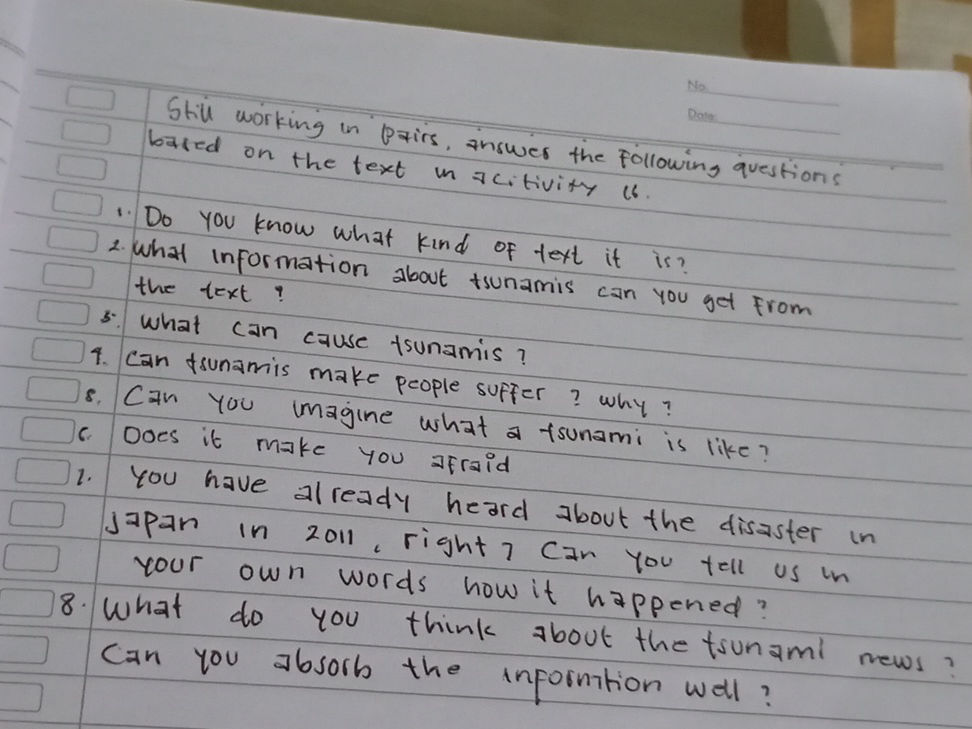 No.
Date:
Still working in pairs, answer the following questions
based on the text in acitivity 16.
1. Do you know what kind of text it is?
2. What information about tsunamis can you get from
the text?
3. What can cause tsunamis?
4. Can tsunamis make people suffer? why?
5. Can you imagine what a tsunami is like?
6. Does it make you afraid
7. You have already heard about the disaster in
Japan in 2011, right? Can you tell us in
your own words how it happened?
8. What do you think about the tsunami news?
Can you absorb the information well?